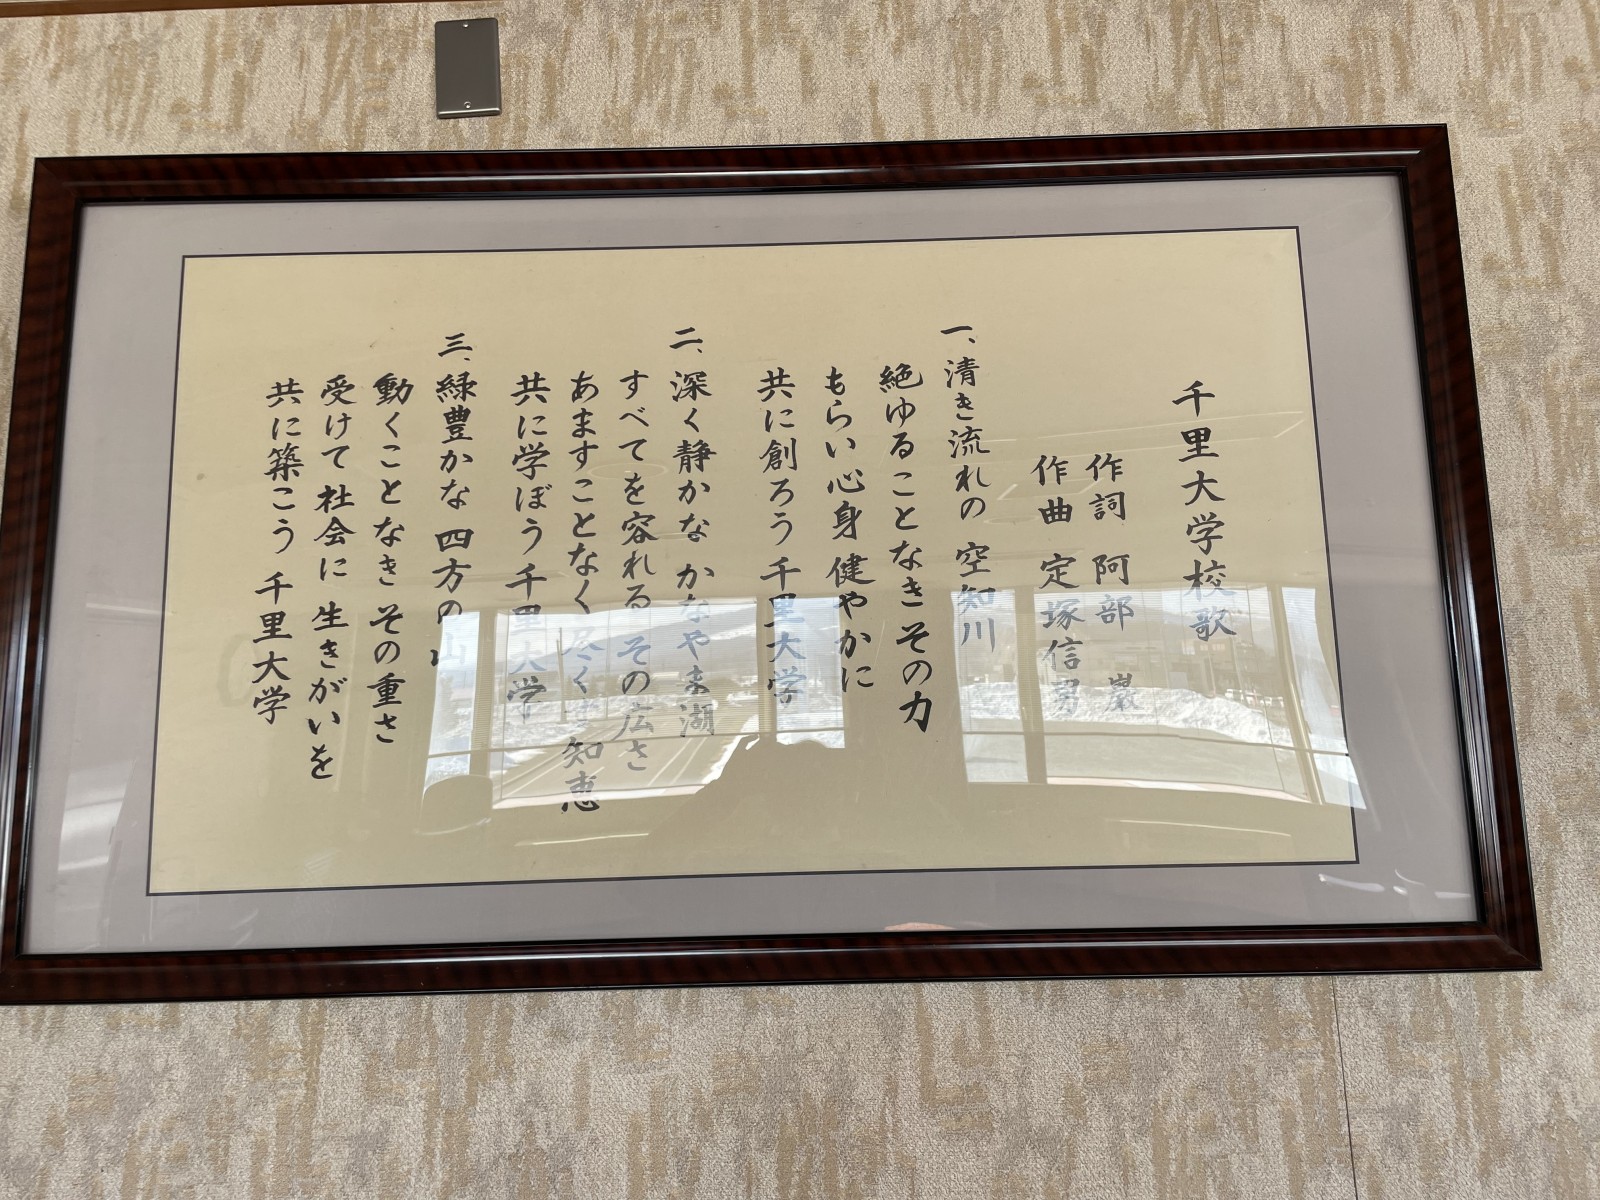 千里大学校歌
作詞 阿部 巖
作曲 定塚信男
一、清き流れの 空知川
絶ゆることなき その力
もらい心身 健やかに
共に創ろう 千里大学
二、深く静かな かなやま湖
すべてを容れる その広さ
あますことなく 尽く 知恵
共に学ぼう 千里大学
三、緑豊かな 四方の山
動くことなき その重さ
受けて社会に 生きがいを
共に築こう 千里大学